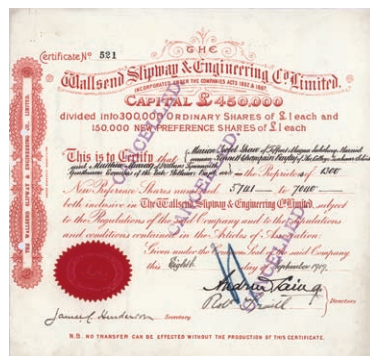 Certificate No 521
THE
Wallsend Slipway & Engineering Co. Limited.
INCORPORATED UNDER THE COMPANIES ACTS 1862 & 1867.
CAPITAL £450,000
divided into 300,000 ORDINARY SHARES of £1 each
and 150,000 NEW PREFERENCE SHARES of £1 each
This is to Certify that
Proprietors of 1300
New Preference Shares numbered 5701 to 7000
both inclusive in The Wallsend Slipway & Engineering Co. Limited, subject
to the Regulations of the said Company and to the Regulations
and conditions contained in the Articles of Association.
Given under the Common Seal of the said Company
this Eighth day of September 1919.
Andrew Laing
Directors
James C. Henderson Secretary
N.B. NO TRANSFER CAN BE EFFECTED WITHOUT THE PRODUCTION OF THIS CERTIFICATE.
THE WALLSEND SLIPWAY & ENGINEERING CO. LIMITED
CANCELLED
CANCELLED